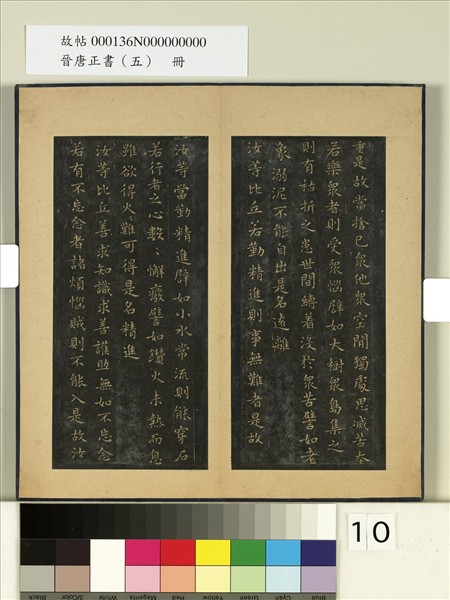 故帖 000136N000000000
晉唐正書（五） 冊
重是故當捨己衆他衆空閒獨處思滅苦本
若樂衆者則受衆惱辟如大樹衆鳥集之
則有枯折之患世間縛著沒於衆苦譬如老
象溺泥不能自出是名遠離
汝等比丘若勤精進則事無難者是故
汝等當勤精進辟如小水常流則能穿石
若行者之心數〻懈癈譬如鑽火未熱而息
雖欲得火難可得是名精進
汝等比丘善求知識求善護助無如不忘念
若有不忘念者諸煩惱賊則不能入是故汝
10
Black 3/Color White Magenta Red Yellow Green Cyan Blue